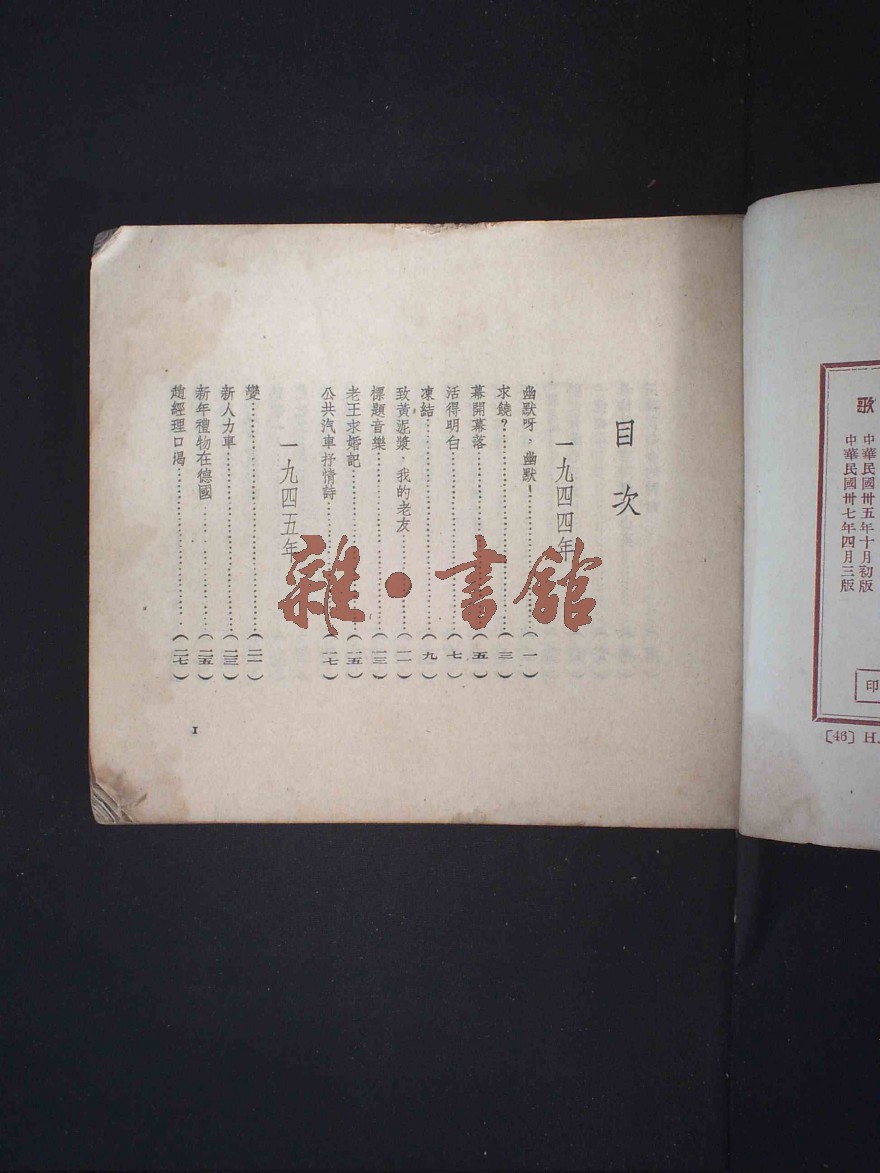 歌
中華民國卅五年十月初版
中華民國卅七年四月三版
印
〔46〕H.
目次
一九四四年
幽默呀，幽默！（一）
求饒？（三）
幕開幕落（五）
活得明白（七）
凍結（九）
致黃泥漿，我的老友（一一）
標題音樂（一三）
老王求婚記（一五）
公共汽車抒情詩（一七）
一九四五年
變（二一）
新人力車（二三）
新年禮物在德國（二五）
趙經理口渴（二七）
I
雜·書館